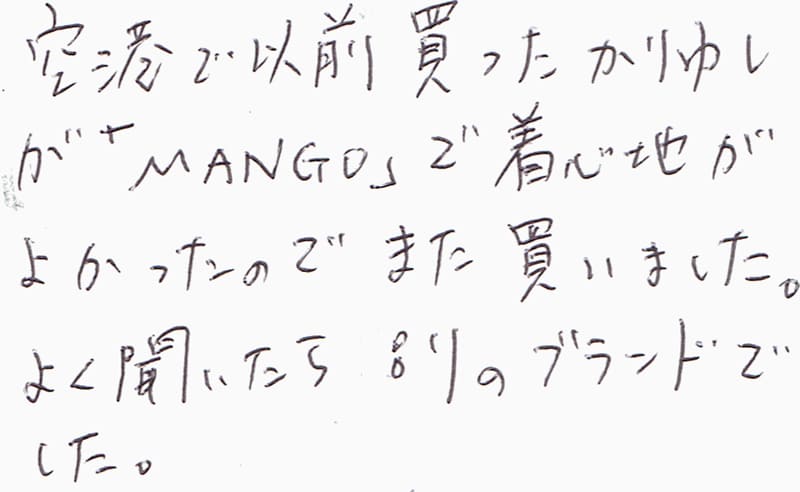 空港で以前買ったかりゆし
が「MANGO」で着心地が
よかったのでまた買いました。
よく聞いたら別のブランドで
した。